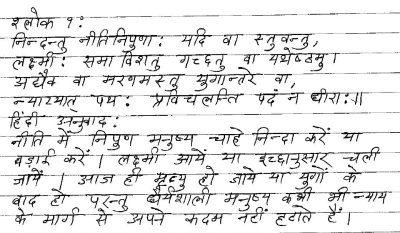 श्लोक १:
निन्दन्तु नीतिनिपुणाः यदि वा स्तुवन्तु,
लक्ष्मीः समाविशतु गच्छतु वा यथेष्टम्।
अद्यैव वा मरणमस्तु युगान्तरे वा,
न्याय्यात् पथः प्रविचलन्ति पदं न धीराः॥
हिंदी अनुवाद:
नीति में निपुण मनुष्य चाहे निन्दा करें या
बड़ाई करें । लक्ष्मी आयें या इच्छानुसार चली
जायें । आज ही मृत्यु हो जाये या युगों के
बाद हो परन्तु धैर्यशाली मनुष्य कभी भी न्याय
के मार्ग से अपने कदम नहीं हटाते हैं।